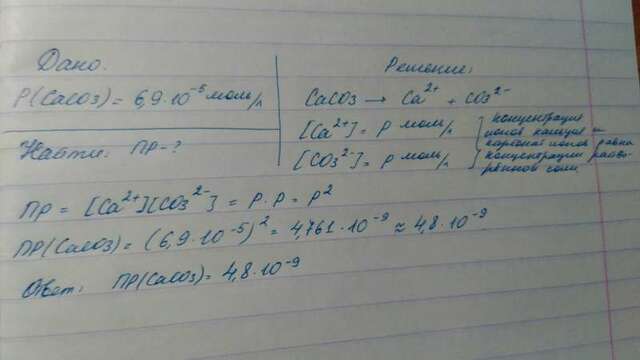 Дано:
P(CaCO3) = 6,9·10⁻⁵ моль/л
Найти: ПР-?
Решение:
CaCO3 → Ca²⁺ + CO3²⁻
[Ca²⁺] = P моль/л
[CO3²⁻] = P моль/л
концентрация
ионов кальция и
карбонат ионов равна
концентрации раство-
рённой соли
ПР = [Ca²⁺][CO3²⁻] = P·P = P²
ПР(CaCO3) = (6,9·10⁻⁵)² = 4,761·10⁻⁹ ≈ 4,8·10⁻⁹
Ответ: ПР(CaCO3) = 4,8·10⁻⁹